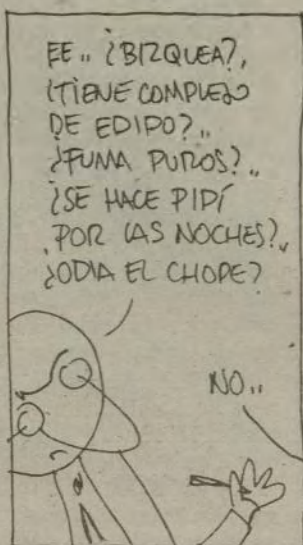 EE.. ¿BIZQUEA?,
¿TIENE COMPLEJO
DE EDIPO?..
¿FUMA PUROS?..
¿SE HACE PIPÍ
POR LAS NOCHES?..
¿ODIA EL CHOPE?
NO..